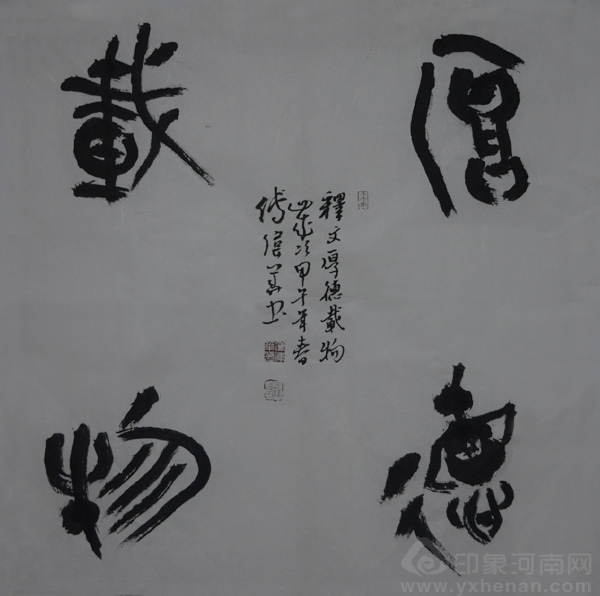 厚德
載物
釋文厚德載物
歲次甲午年春
傅信善书
印象河南网
www.yxhenan.com